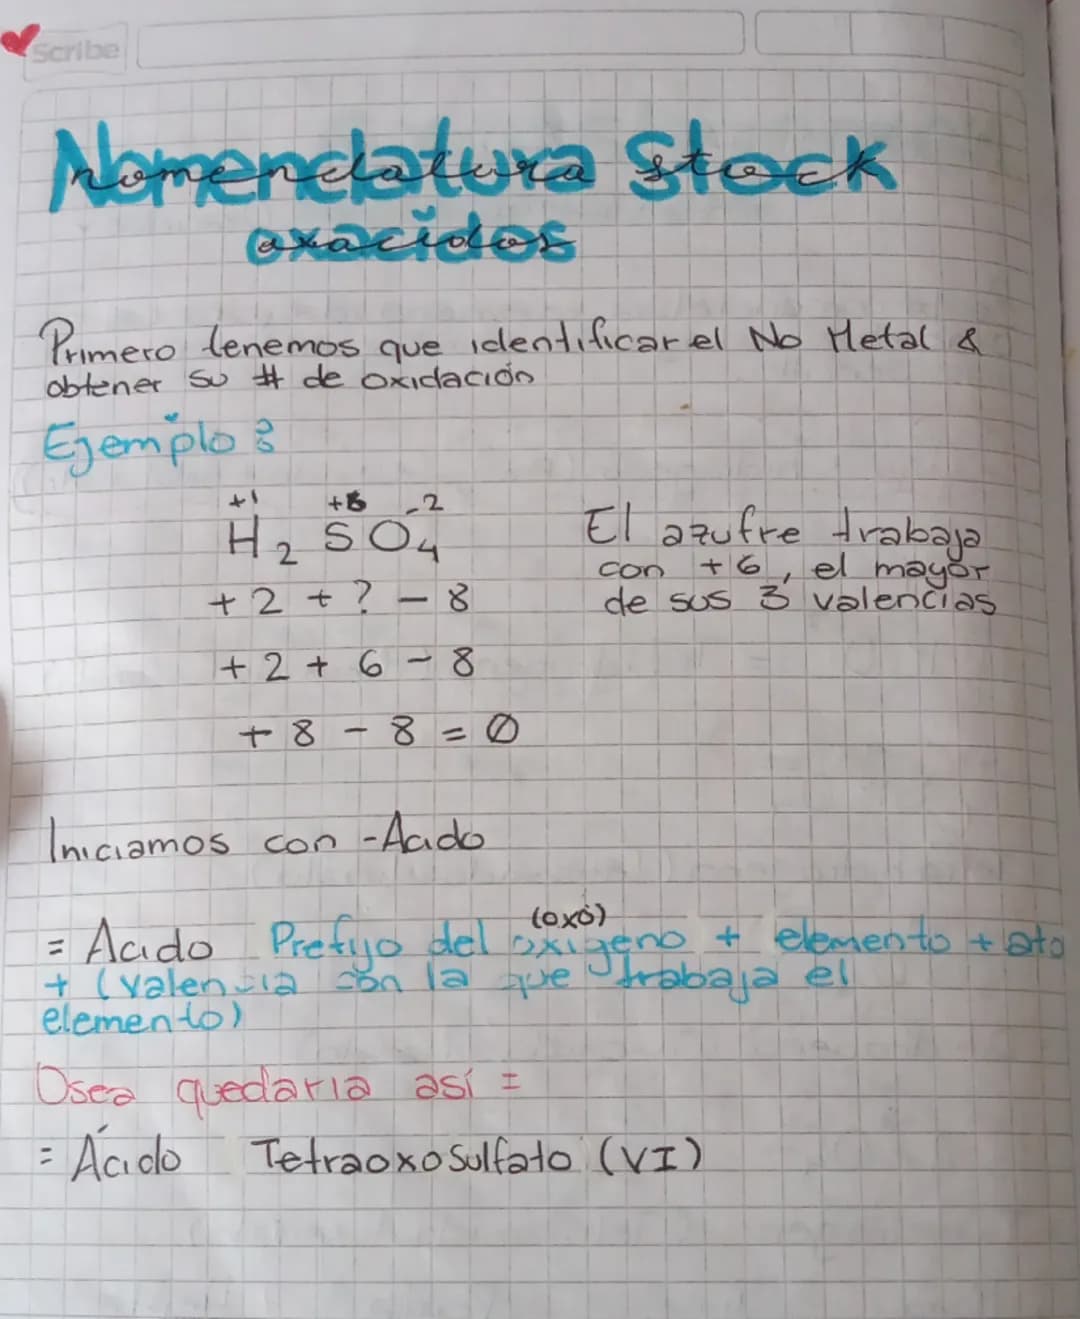 Scribe
Nomenclatura Stock
oxacidos
Primero tenemos que identificar el No Metal &
obtener su # de oxidación
Ejemplo:
+1 +6 -2
H2 SO4
+2 + ? - 8
+2 + 6 - 8
+8 - 8 = 0
El azufre trabaja
con +6, el mayor
de sus 3 valencias
Iniciamos con -Acido
(oxó)
= Acido Prefijo del oxigeno + elemento + ato
+ (valencia con la que trabaja el
elemento)
Osea quedaria así =
= Ácido Tetraoxosulfato (VI)